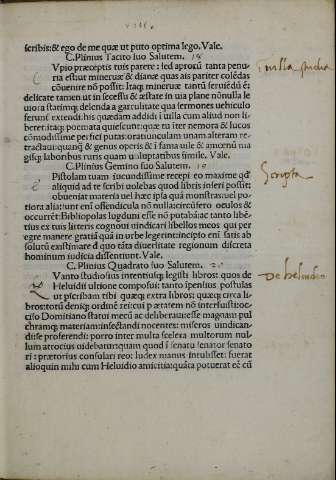 scribis: & ego de me quæ ut puto optima lego. Vale.
C. Plinius Tacito suo Salutem.
Vpio præceptis tuis parere: sed aprorũ tanta penu
ria est: ut mineruæ & dianæ quas ais pariter colẽdas
cõuenire nõ possit: Itaq; mineruæ tantũ seruiẽdũ ẽ:
delicate tamen ut in secessu & æstate in uia plane nõnulla le
uiora statimq; delenda ea garrulitate qua sermones in uehiculo
serunt̃ extendi: his quædam addidi i uilla cum aliud non li
beret: itaq; poemata quiescunt: quæ tu iter nemora & lucos
cõmodissime perfici putas: oratiunculam unam alteram re
tractaui: quanq̃ & genus operis ẽ i samœ uile & amœnũ ma
gisq; laboribus ruris quam uoluptatibus simile. Vale.
C. Plinius Gemino suo Salutem.
Pistolam tuam iucundissime recepi: eo maxime qd̃
aliquid ad te scribi uolebas quod libris inseri possit:
obueniet materia uel hæc ipsa quã monstras: uel po
tiora alia: sunt enĩ offendicula nõ nulla: circũfero oculos &
occurrẽt: Bibliopolas lugduni esse nõ putabã: ac tanto libẽ
tius ex tuis litteris cognoui uindicari libellos meos qui per
egre manere gratiã quã in urbe legerint: incipio enĩ satis ab
solutũ existimare d̃ quo tãta diuersitate regionum discreta
hominum iudicia consentiunt. Vale.
C. Plinius Quadrato suo Salutem.
Vanto studiosius intentiusq; legisti libros: quos de
Heluidii ultione composui: tanto ipensius postulas
ut pscribam tibi quæq; extra libros: quæq; circa li
bros: totũ deniq; ordinẽ rei cui p ætatem nõ interfuisti: oc
ciso Domitiano statui mecũ ac deliberaui: esse magnam pul
chramq; materiam: insectandi nocentes: miseros uindican-
di: se proferendi: porro inter multa scelera multorum nul-
lum atrocius uidebatur: quam quod ĩ senatu senator senato
ri: prætorius consulari reo: iudex manus intulisset: fuerat
alioquin mihi cum Heluidio amicitia: quãta potuerat eẽ cũ
Scripta
De heluidio